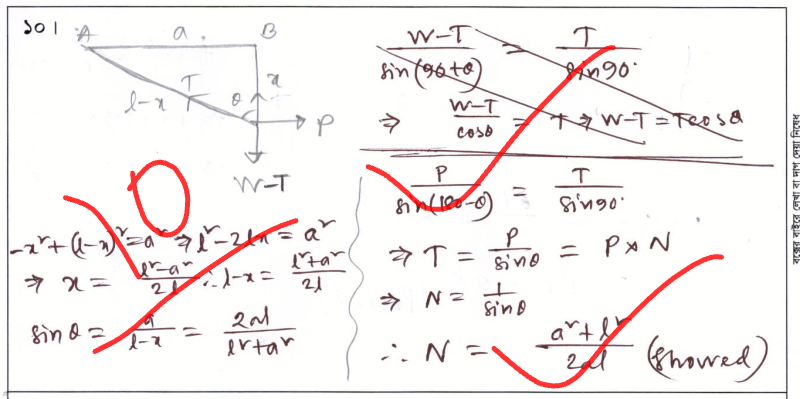 ১০।
A a B
T x
l-x θ P
W-T
-x² + (l-x)² = a² ⇒ l² - 2lx = a²
⇒ x = (l²-a²)/2l ∴ l-x = (l²+a²)/2l
sinθ = a/(l-x) = 2al/(l²+a²)
(W-T)/sin(90+θ) = T/sin90°
⇒ (W-T)/cosθ = T ⇒ W-T = Tcosθ
P/sin(180-θ) = T/sin90°
⇒ T = P/sinθ = P×N
⇒ N = 1/sinθ
∴ N = (a²+l²)/2al (showed)
বক্সের বাইরে লেখা বা দাগ দেয়া নিষেধ